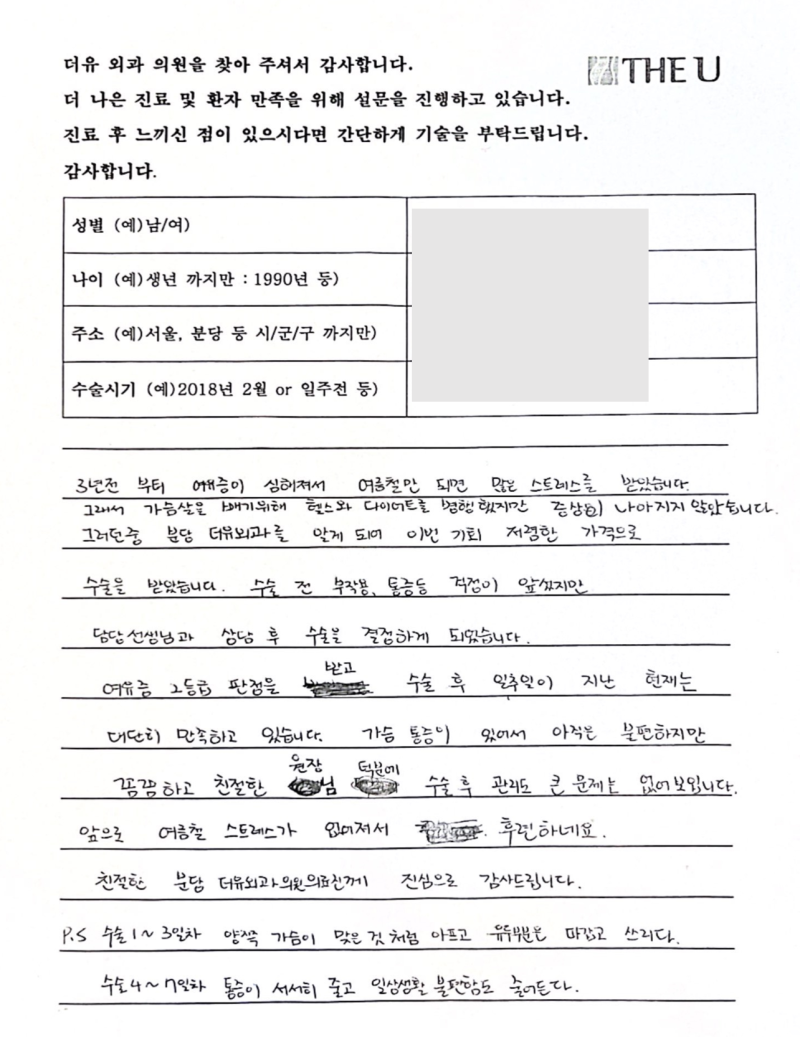 더유 외과 의원을 찾아 주셔서 감사합니다.
THE U
더 나은 진료 및 환자 만족을 위해 설문을 진행하고 있습니다.
진료 후 느끼신 점이 있으시다면 간단하게 기술을 부탁드립니다.
감사합니다.
성별 (예)남/여)
나이 (예)생년 까지만 : 1990년 등)
주소 (예)서울, 분당 등 시/군/구 까지만)
수술시기 (예)2018년 2월 or 일주전 등)
3년전 부터 여유증이 심해져서 여름철만 되면 많은 스트레스를 받았습니다.
그래서 가슴살을 빼기위해 헬스와 다이어트를 병행했지만 증상이 나아지지 않았습니다.
그러던중 분당 더유외과를 알게 되어 이번 기회 저렴한 가격으로
수술을 받았습니다. 수술 전 부작용, 통증등 걱정이 앞섰지만
담당선생님과 상담 후 수술을 결정하게 되었습니다.
여유증 2등급 판정을 받고 수술 후 일주일이 지난 현재는
대단히 만족하고 있습니다. 가슴 통증이 있어서 아직은 불편하지만
꼼꼼하고 친절한 원장님 덕분에 수술 후 관리도 큰 문제는 없어보입니다.
앞으로 여름철 스트레스가 없어져서 후련하네요.
친절한 분당 더유외과의원의료진께 진심으로 감사드립니다.
P.S 수술1~3일차 양쪽 가슴이 맞은 것 처럼 아프고 유두부분은 따갑고 쓰리다.
수술4~7일차 통증이 서서히 줄고 일상생활 불편함도 줄어든다.